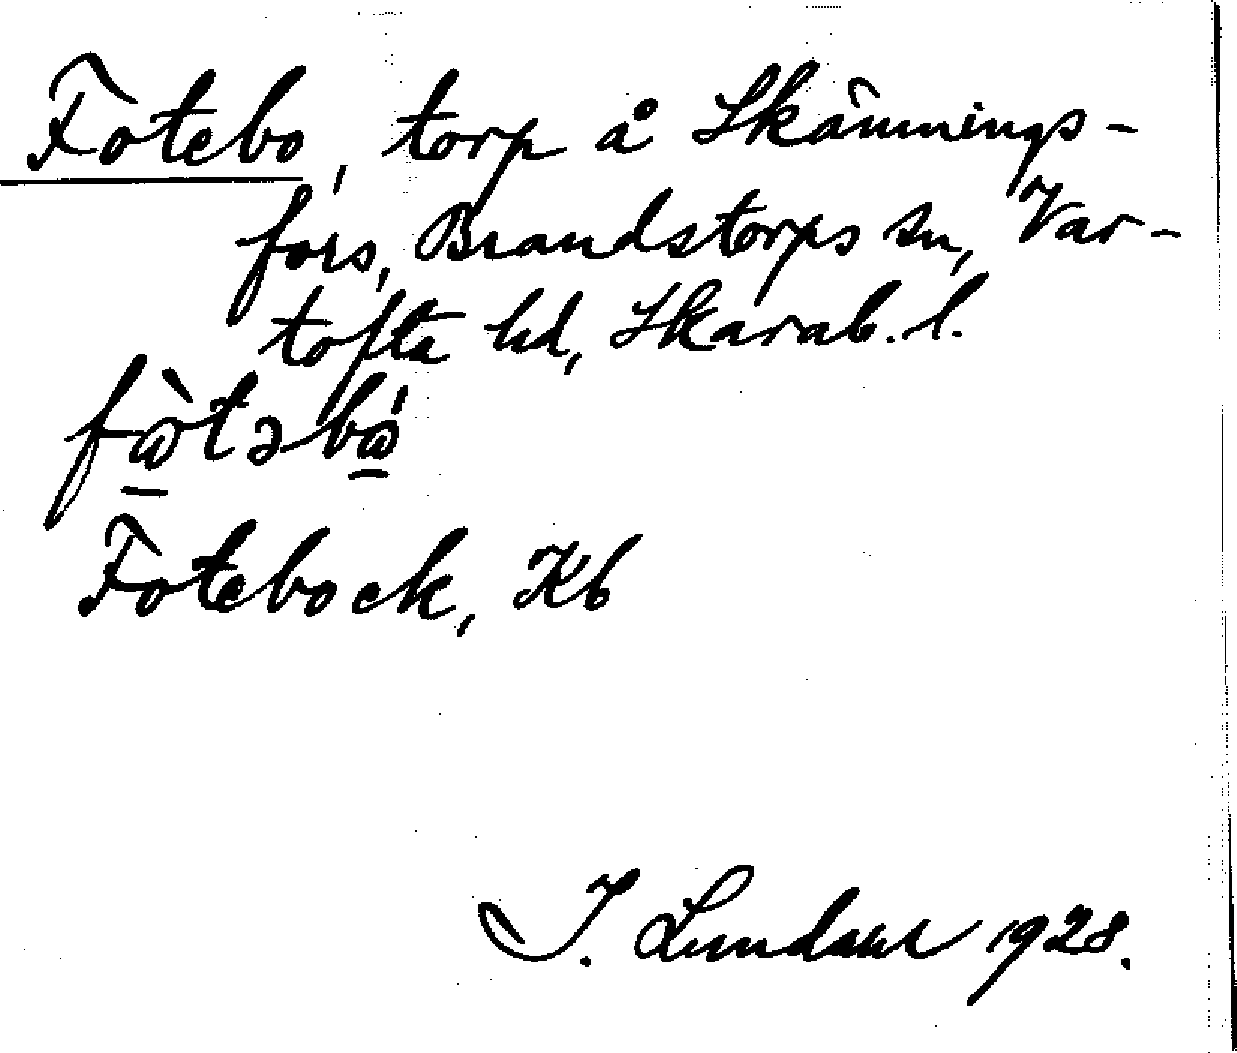 Fotebo, torp å Skämnings-
fors, Brandstorps sn, Var-
tofta hd, Skarab. l.
fὼ̲təbώ̲
Fotebock, Kb
I. Lundahl 1928.